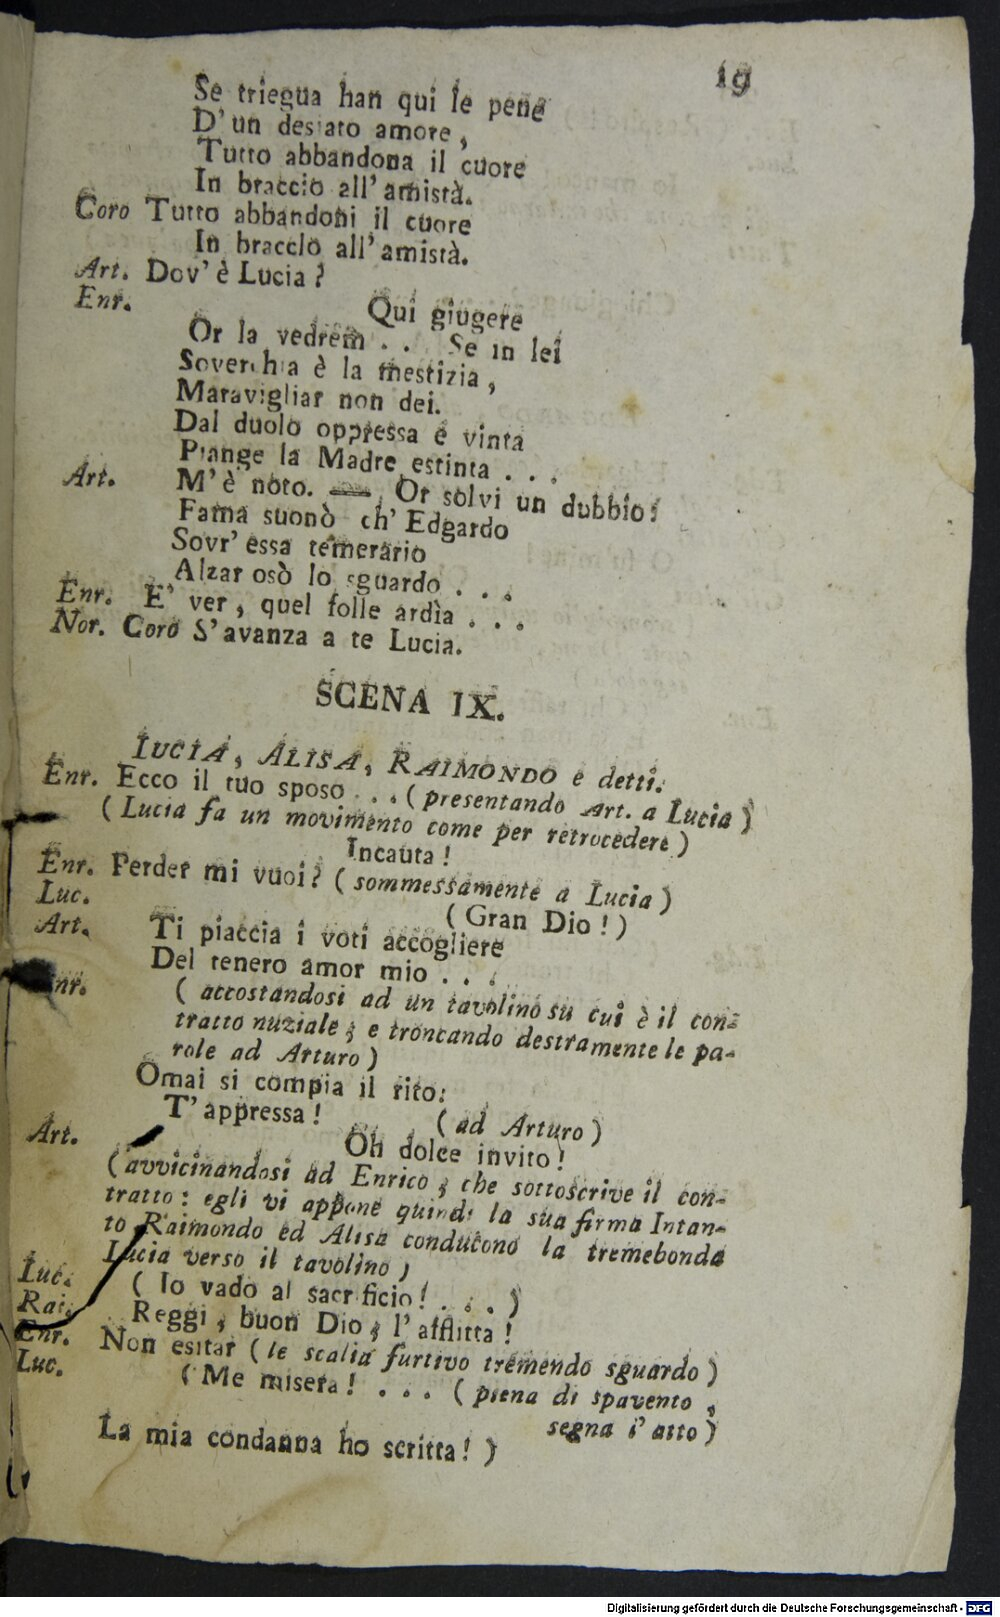 19
Se triegua han qui le pene
D' un desiato amore,
Tutto abbandona il cuore
In braccio all' amistà.
Coro Tutto abbandoni il cuore
In braccio all' amistà.
Art. Dov' è Lucia?
Enr. Qui giugere
Or la vedrem . . Se in lei
Soverchia è la mestizia,
Maravigliar non dei.
Dal duolo oppressa e vinta
Piange la Madre estinta . . .
Art. M' è noto. — Or solvi un dubbio:
Fama suonò ch' Edgardo
Sovr' essa temerario
Alzar osò lo sguardo . . .
Enr. E' ver, quel folle ardìa . . .
Nor. Coro S' avanza a te Lucia.
SCENA IX.
LUCIA, ALISA, RAIMONDO e detti.
Enr. Ecco il tuo sposo . . . (presentando Art. a Lucia)
(Lucia fa un movimento come per retrocedere)
Incauta!
Enr. Perder mi vuoi? (sommessamente a Lucia)
Luc. (Gran Dio!)
Art. Ti piaccia i voti accogliere
Del tenero amor mio . . .
Enr. (accostandosi ad un tavolino su cui è il con-
tratto nuziale; e troncando destramente le pa-
role ad Arturo)
Omai si compia il rito:
T' appressa! (ad Arturo)
Art. Oh dolce invito!
(avvicinandosi ad Enrico; che sottoscrive il con-
tratto: egli vi appone quindi la sua firma Intan-
to Raimondo ed Alisa conducono la tremebonda
Lucia verso il tavolino)
Luc. (Io vado al sacrificio! . . .)
Rai. Reggi, buon Dio, l' afflitta!
Enr. Non esitar (le scalia furtivo tremendo sguardo)
Luc. (Me misera! . . . (piena di spavento,
segna l' atto)
La mia condanna ho scritta!)
Digitalisierung gefördert durch die Deutsche Forschungsgemeinschaft - DFG